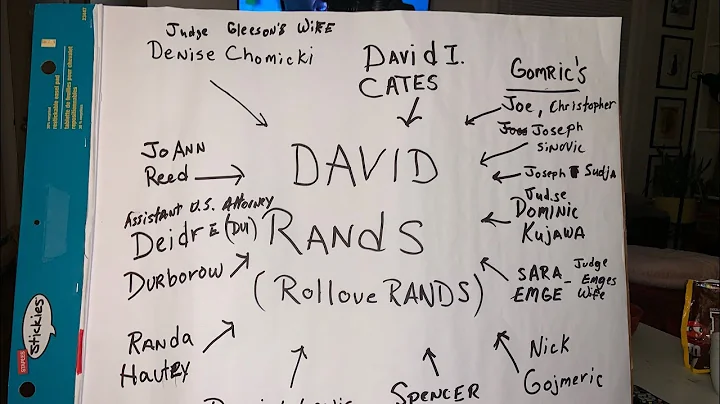 Judge Gleeson's WIFE
Denise Chomicki
David I.
CATES
GOMRIC'S
Joe, Christopher
Joseph
SINOVIC
Joseph Sudja
Judge
DOMINIC
KUJAWA
SARA
EMGE -
Judge
Emges
Wife
Nick
Gojmeric
JoANN
Reed
DAVID
RANdS
(RolloveRANDS)
Assistant U.S. Attorney
DeidrE (DUI)
DURBOROW
RANDA
SPENCER
STAPLES
stickies